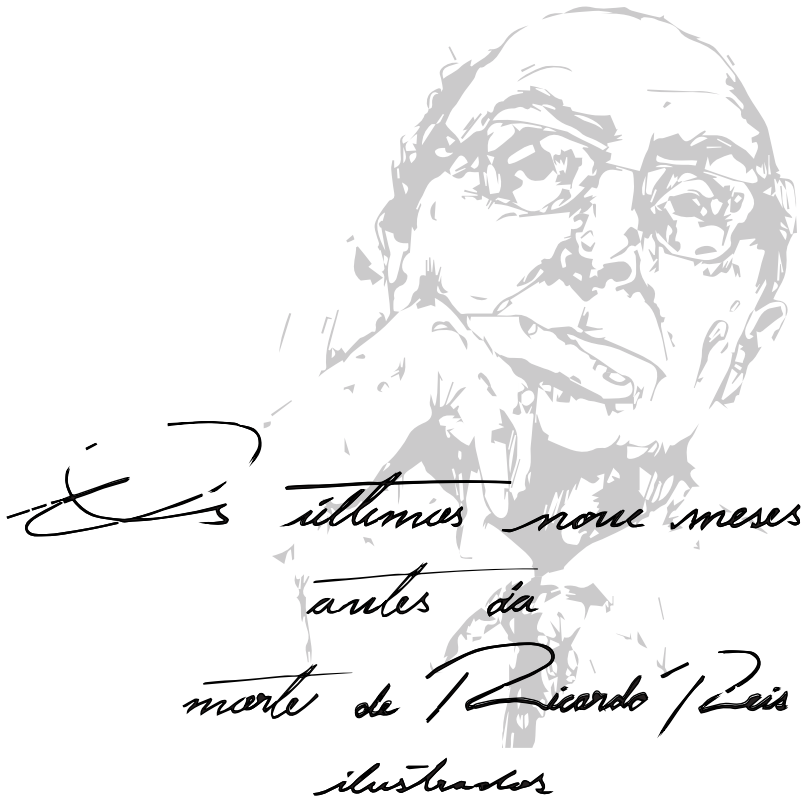 Os últimos nove meses
antes da
morte de Ricardo Reis
ilustrados